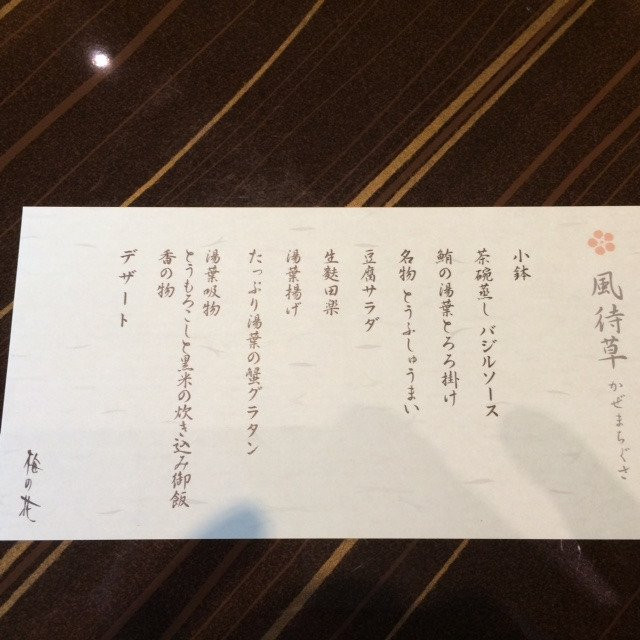 風待草 かぜまちぐさ
小鉢
茶碗蒸し バジルソース
鮪の湯葉とろろ掛け
名物 とうふしゅうまい
豆腐サラダ
生麩田楽
湯葉揚げ
たっぷり湯葉の蟹グラタン
湯葉吸物
とうもろこしと黒米の炊き込み御飯
香の物
デザート
梅の花